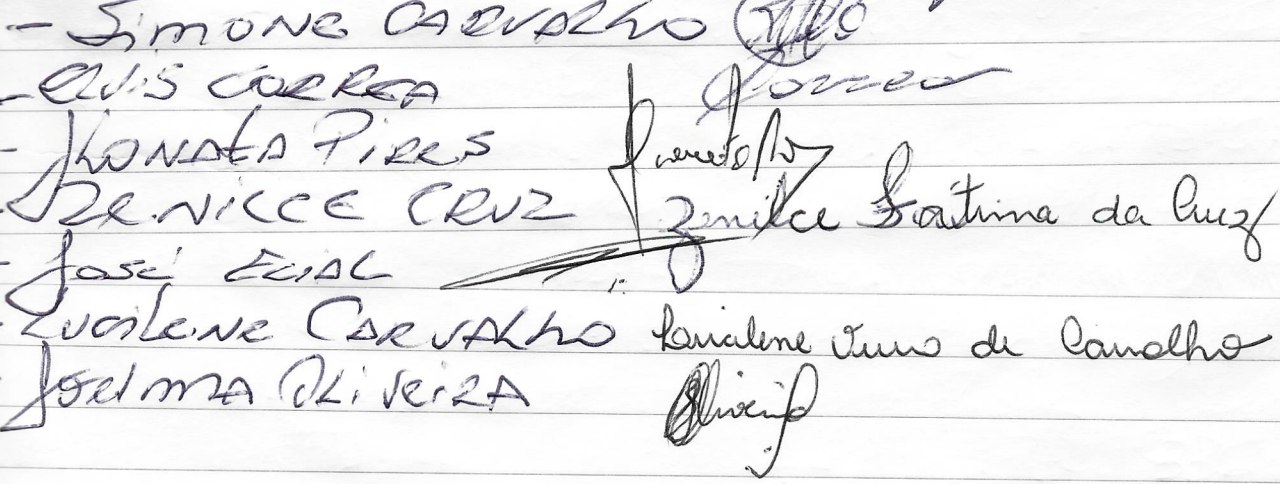 - Simone CARVALHO
- ELVIS CORREA Correa
- JHONATA PIRES
- ZENILCE CRUZ Zenilce Fatima da Cruz
- José
- LUCILENE CARVALHO Lucilene de Carvalho
- JOELMA OLIVEIRA Oliveira